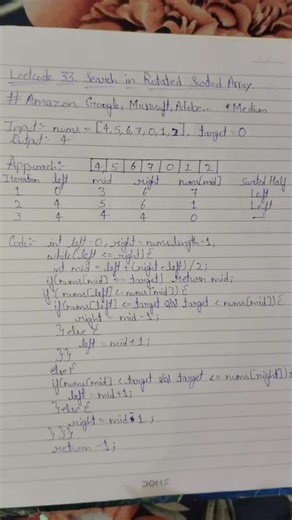 Leetcode 33. Search in Rotated Sorted Array.
# Amazon, Google, Microsoft, Adobe... *Medium
Input:- nums = [4,5,6,7,0,1,2], target = 0
Output: 4
Approach:- 4 5 6 7 0 1 2
Iteration left mid right nums[mid] Sorted Half
1 0 3 6 7 Left
2 4 5 6 1 Left
3 4 4 4 0 —
Code:- int left=0, right=nums.length-1;
while(left <= right){
int mid = left + (right-left)/2;
if(nums[mid] == target) return mid;
if (nums[left] <= nums[mid]){
if(nums[left] <= target && target < nums[mid]){
right = mid-1;
} else {
left = mid+1;
}}
else{
if(nums[mid] < target && target <= nums[right]){
left = mid+1;
} else {
right = mid-1;
}}}
return -1;